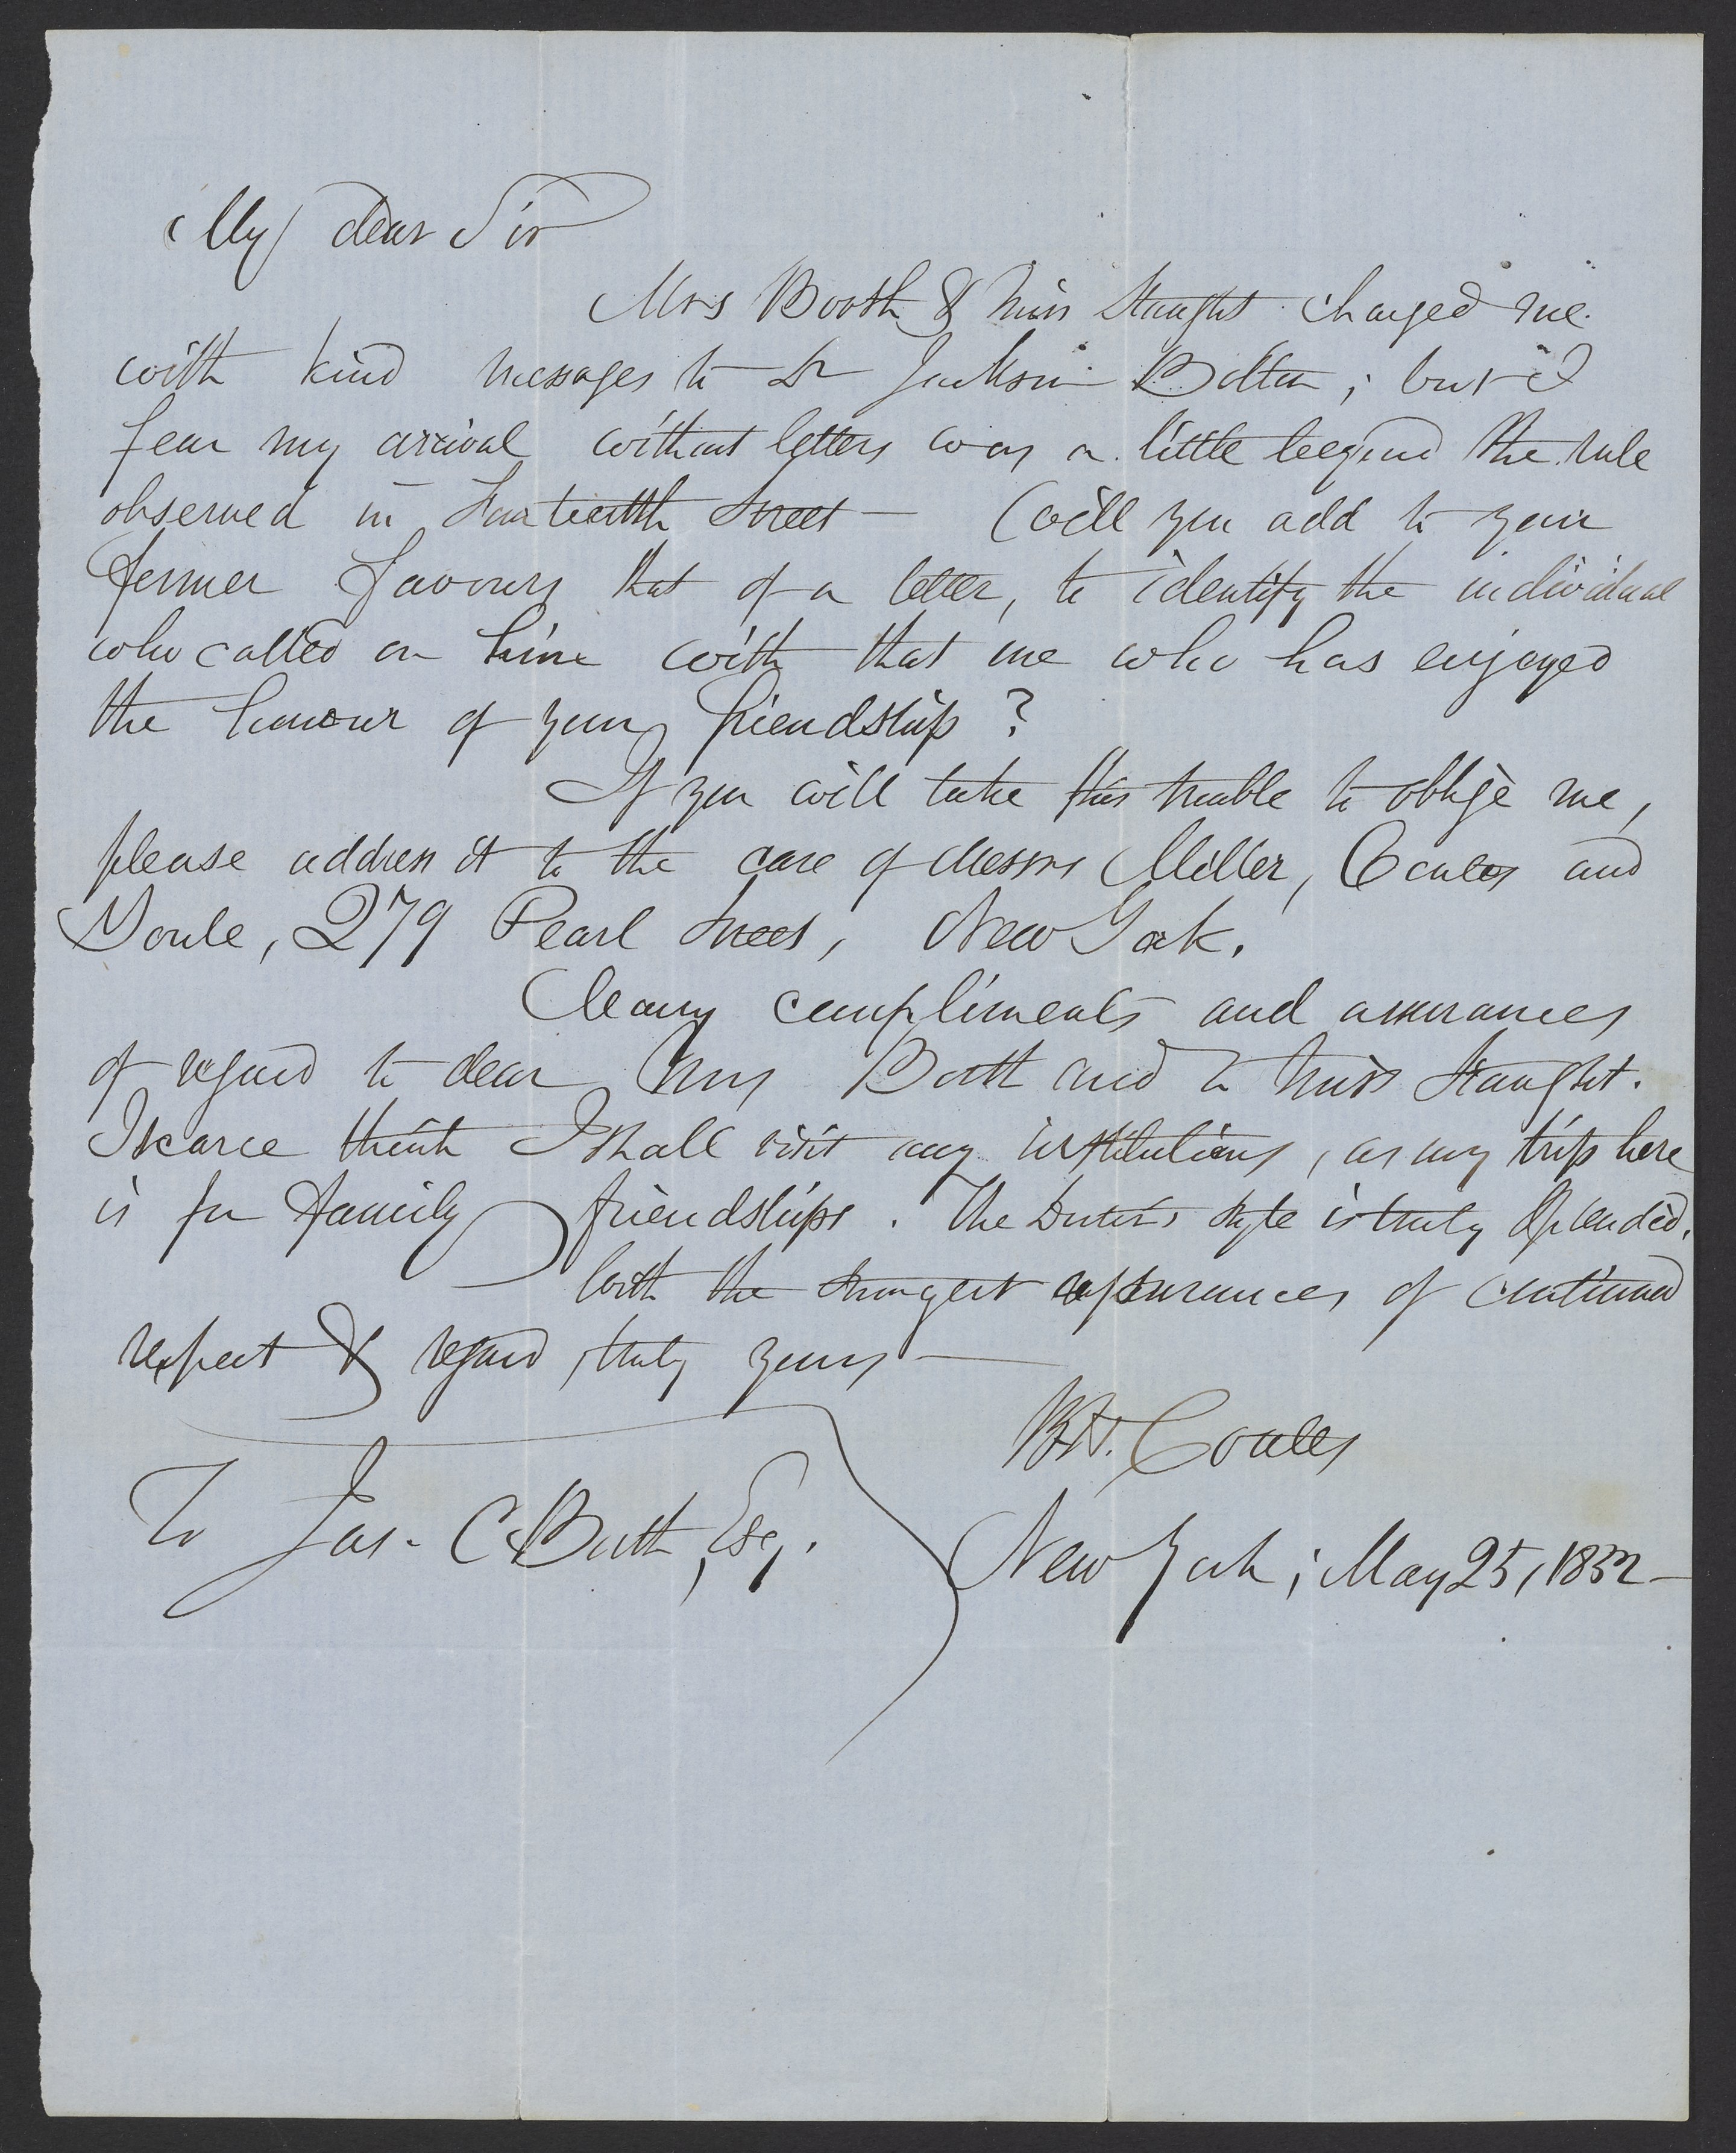 My dear Sir
Mrs Booth & Miss charged me
with kind messages to Dr Jackson Bolton; but I
fear my arrival without letters was a little beyond the rule
observed in Fourteenth Street — Will you add to your
former favours that of a letter, to identify the individual
who called on him with that one who has enjoyed
the honour of your friendship?
If you will take this trouble to oblige me,
please address it to the care of Messrs Miller, Coates and
Youle, 279 Pearl Street, New York.
Many compliments and assurances
of regard to dear Mrs Booth and to Miss
I scarce think I shall visit any institutions, as my trip here
is for family friendships. The Doctor's style is truly splendid.
With the strongest assurances of continued
respect & regard, truly yours —
B.H. Coates
To Jas. C Booth, Esq.
New York; May 25, 1852 —